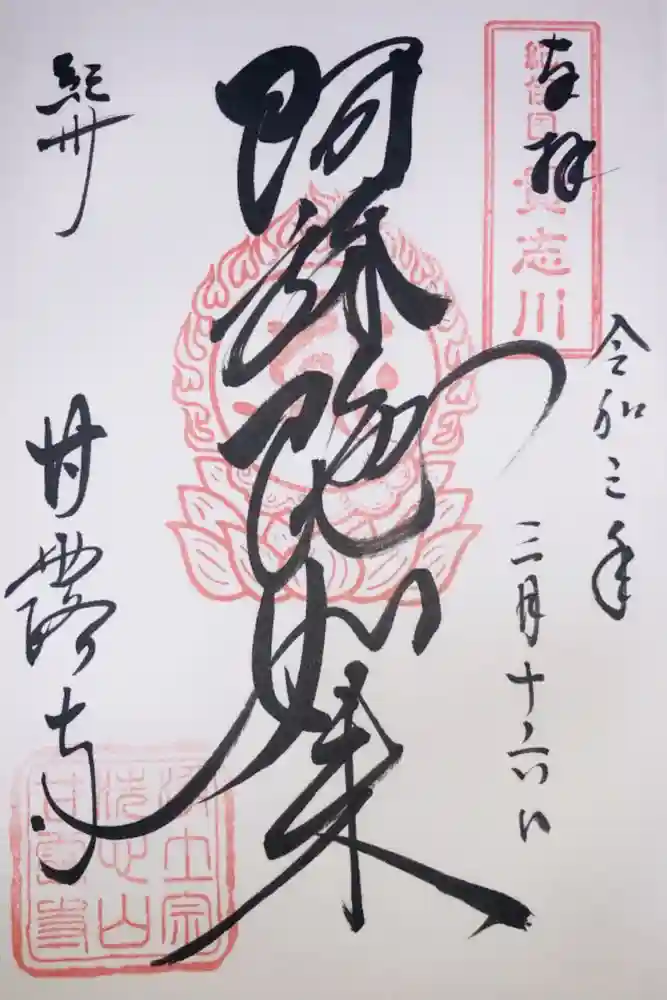 奉拝
紀伊国 貴志川
令和三年
三月十六日
阿弥陀如来
紀州
甘露寺
浄土宗
洗心山
甘露寺